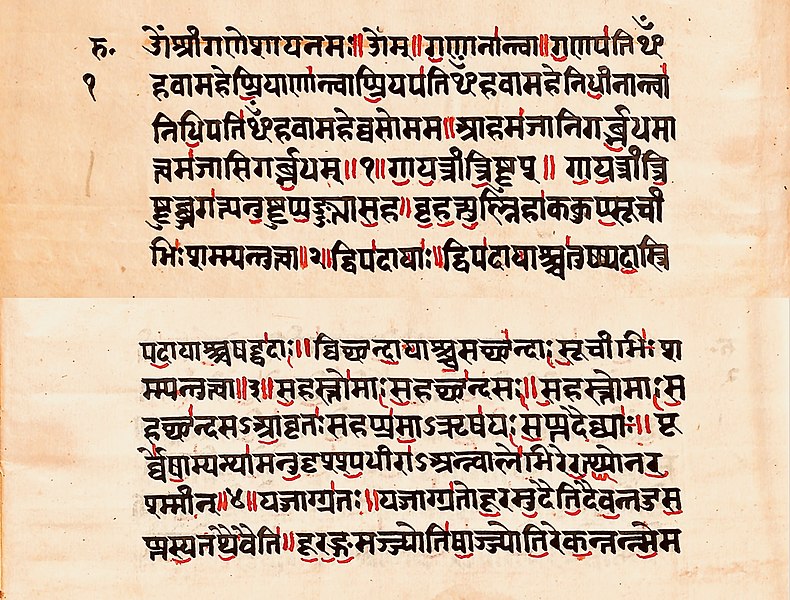 रु. ॐश्रीगणेशायनमः॥ॐम्॥गणानान्त्वा॥गणपतिꣳ
१ हवामहेप्प्रियाणान्त्वाप्प्रियपतिꣳहवामहेनिधीनान्त्वा
निधिपतिꣳहवामहेव्वसोमम॥आहमजानिगर्ब्भधमा
त्वमजासिगर्ब्भधम्॥१॥गायत्रीत्रिष्टुप्॥गायत्रीत्रि
ष्टुब्जगत्यनुष्टुप्पङ्क्त्यासह॥बृहत्युष्णिहाककुप्प्सूची
भिःशम्म्यन्तुत्वा॥२॥द्विपदायाः॥द्विपदायाश्चतुष्ष्पदास्त्रि
पदायाश्चषट्पदाः॥व्विच्छन्दायाश्चसच्छन्दाःसूचीभिःश
म्म्यन्तुत्वा॥३॥सहस्तोमाःसहच्छन्दसः॥सहस्तोमाःस
हच्छन्दसऽआवृतःसहप्प्रमाऽऋषयःसप्प्तदैव्याः॥पू
र्व्वेषाम्पन्थामनुदृश्यधीराऽअन्वालेभिरेरत्थ्योनर
श्मीन्॥४॥यज्जाग्ग्रतः॥यज्जाग्ग्रतोदूरमुदैतिदैवन्तदुसु
प्प्तस्यतथैवैति॥दूरङ्गमञ्ज्योतिषाञ्ज्योतिरेकन्तन्न्मेम